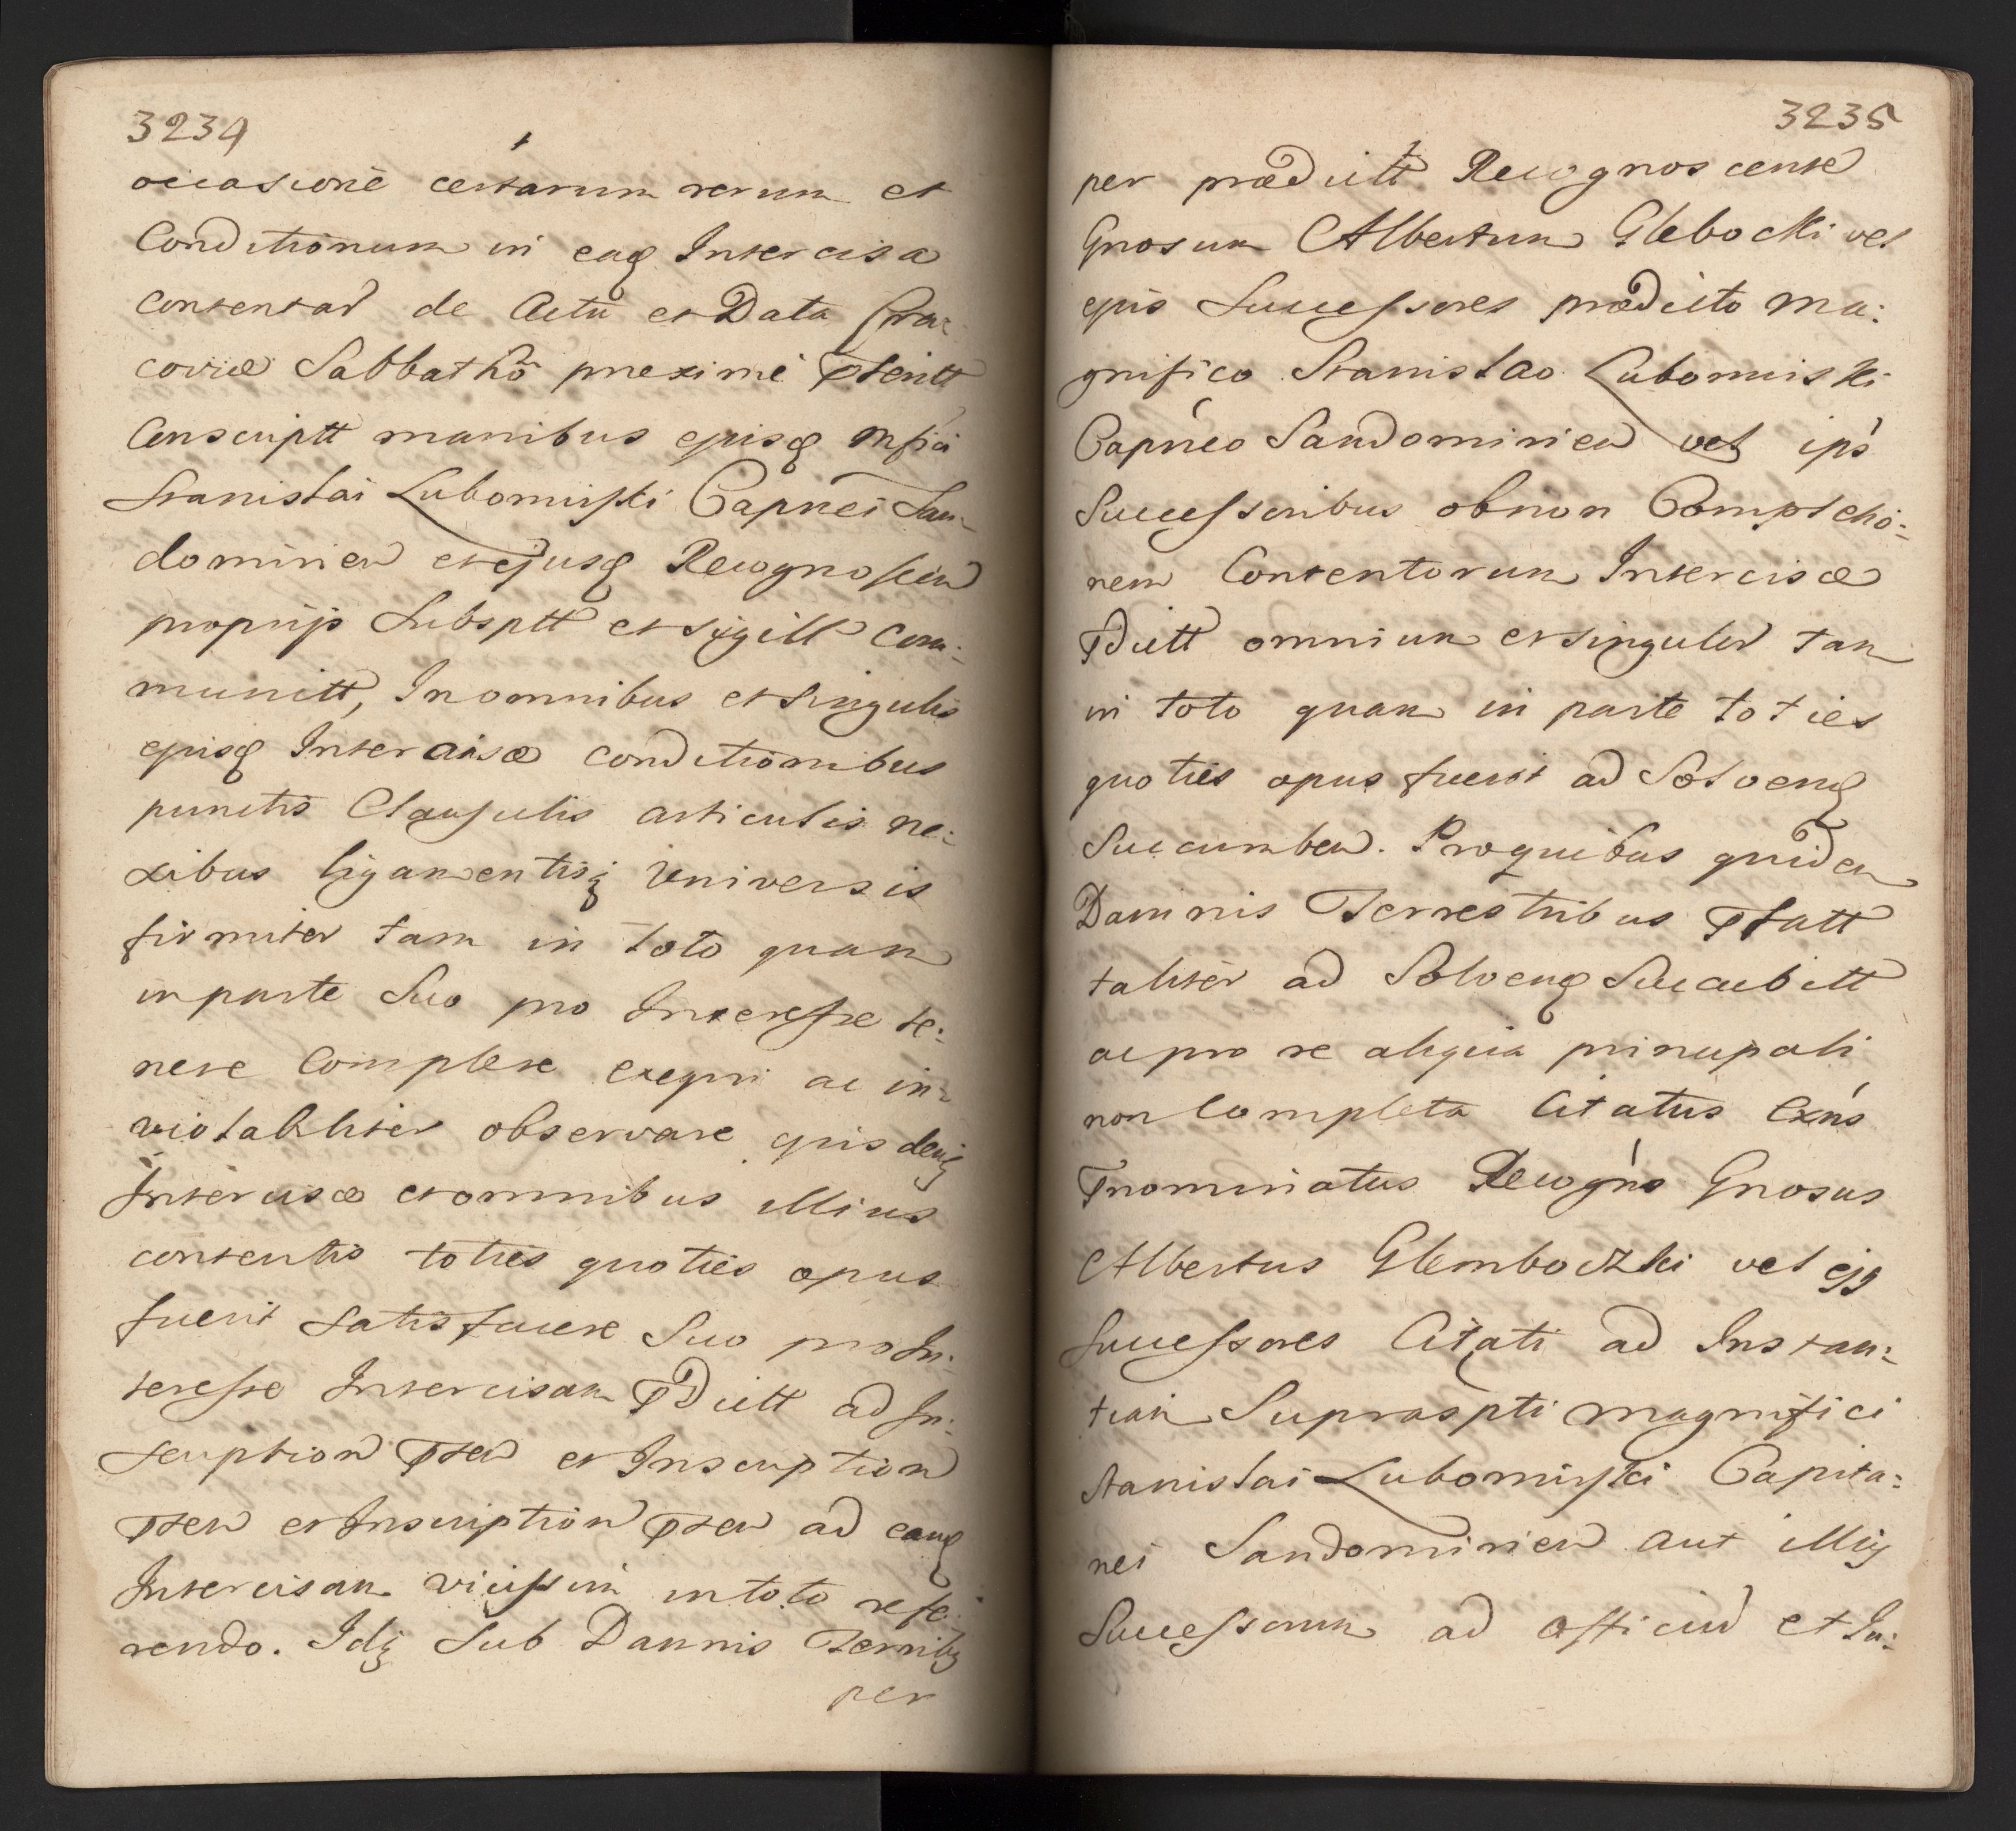 3234
occasione certarum rerum et
Conditionum in eaq Intercisa
contentar de Actu et Data Cra:
coviæ Sabbatho proxime Pterit
Conscriptt manibus ejusq Mfici
Stanislai Lubomirski Capnei San:
domirien et ejusq Recognoscen
proprijs Subsptt et sigill com:
munitt, In omnibus et singulis
ejusq Intercisæ conditionibus
punctis Clausulis articulis ne:
xibus ligamentisq Universis
firmiter tam in toto quam
in parte Suo pro Interesse te:
nere Complere exequi ac in:
violabiliter observare ejusdemq
Intercisæ et omnibus illius
contentis toties quoties opus
fuerit satisfacere Suo pro In:
teresse Intercisam Pdictt ad In:
scription Pten et Inscription
Pten et Inscription Pten ad eamq
Intercisam vicissim in toto refe:
rendo. Idq Sub Damnis Terribq
per
3235
per prædictt Recognoscente
Gnosum Albertum Glebocki vel
ejus Successores prædicto Ma:
gnifico Stanislao Lubomirski
Capneo Sandomirien vel ips
Successoribus obnon Completio:
nem Contentorum Intercisæ
Pdictt omnium et singuler tam
in toto quam in parte toties
quoties opus fuerit ad Solvenq
Succumben. Proquibus quidem
Damnis Terrestribus Pfatt
taliter ad Solvenq Succubitt
ac pro re aliqua principali
non Completa Citatus Exns
Pnominatus Recogns Gnosus
Albertus Glemboczki vel ejq
Successores Citati ad Instan:
tiam Supraspti magnifici
Stanislai Lubomirski Capita:
nei Sandomirien aut illiq
Successorum ad officiu et Iu: